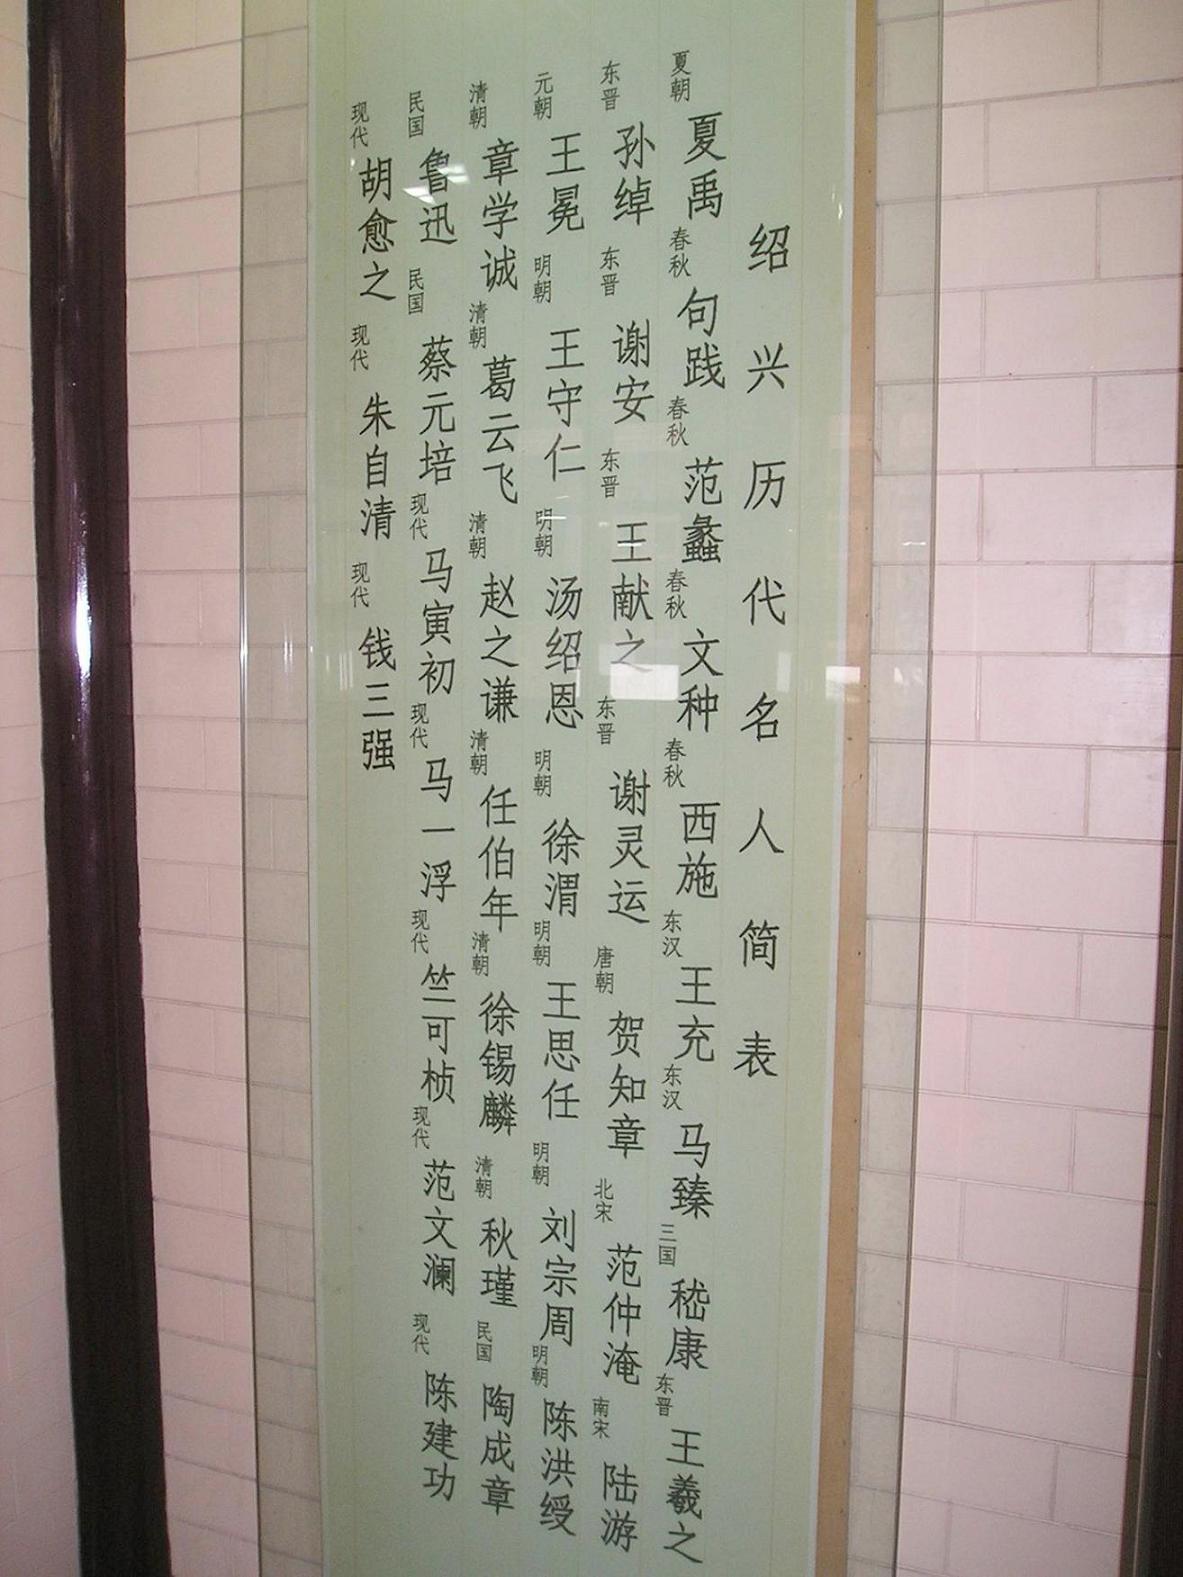 绍兴历代名人简表
夏朝 夏禹 春秋 句践 春秋 范蠡 春秋 文种 春秋 西施 东汉 王充 东汉 马臻 三国 嵇康 东晋 王羲之
东晋 孙绰 东晋 谢安 东晋 王献之 东晋 谢灵运 唐朝 贺知章 北宋 范仲淹 南宋 陆游
元朝 王冕 明朝 王守仁 明朝 汤绍恩 明朝 徐渭 明朝 王思任 明朝 刘宗周 明朝 陈洪绶
清朝 章学诚 清朝 葛云飞 清朝 赵之谦 清朝 任伯年 清朝 徐锡麟 清朝 秋瑾 民国 陶成章
民国 鲁迅 民国 蔡元培 现代 马寅初 现代 马一浮 现代 竺可桢 现代 范文澜 现代 陈建功
现代 胡愈之 现代 朱自清 现代 钱三强